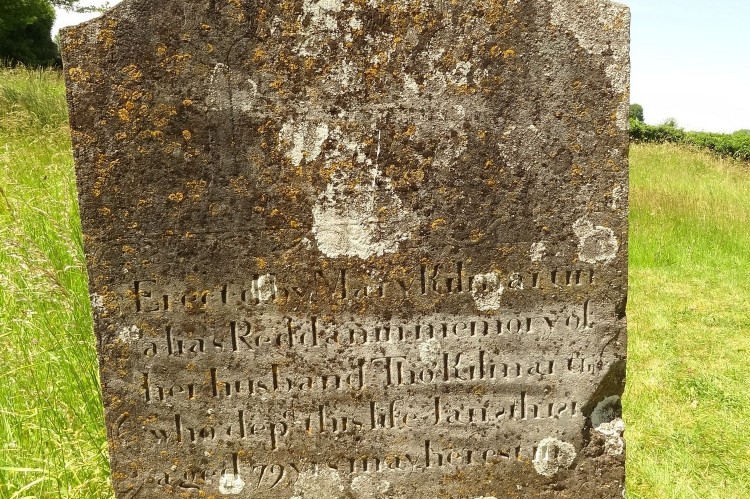 Erected by Mary Kilmartin
alias Reddan in memory of
her husband Thos Kilmartin
who depd this life Jan
aged 79 yrs may he rest in